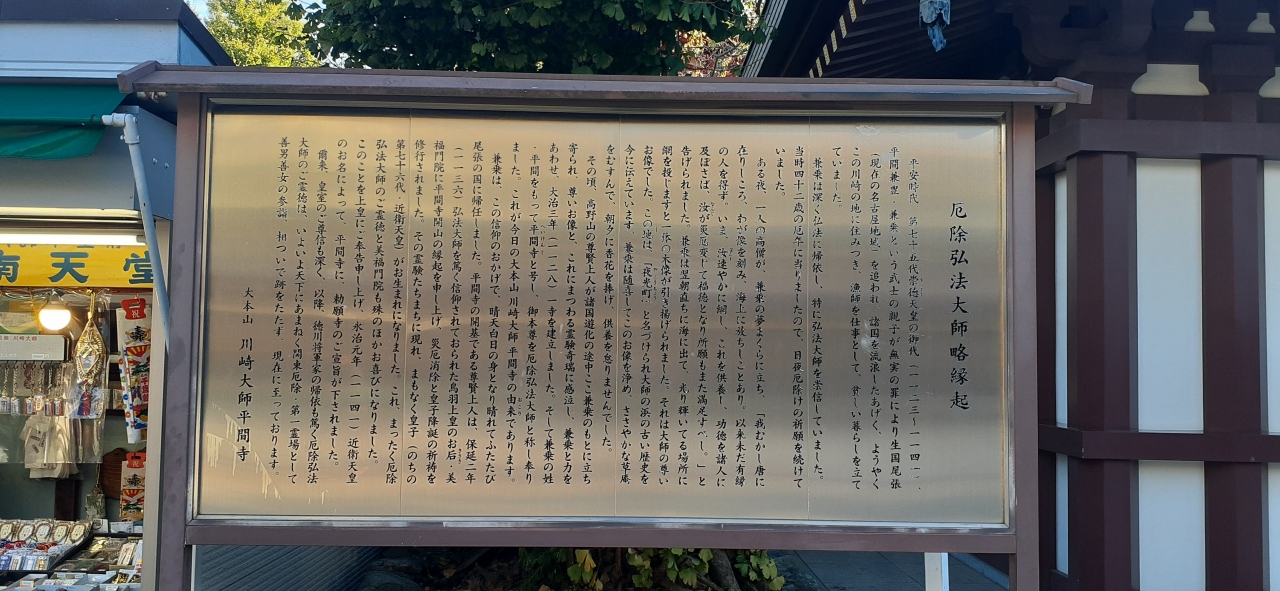 厄除弘法大師略縁起
平安時代、第七十五代崇徳天皇の御代(一一二三〜一一四一)、
平間兼豊・兼乗という武士の親子が無実の罪により生国尾張
(現在の名古屋地域)を追われ、諸国を流浪したあげく、ようやく
この川崎の地に住みつき、漁師を仕事として、貧しい暮らしを立て
ていました。
兼乗は深く仏法に帰依し、特に弘法大師を崇信していました。
当時四十二歳の厄年に当りましたので、日夜厄除けの祈願を続けて
いました。
ある夜、一人の高僧が、兼乗の夢まくらに立ち、「我むかし唐に
在りしころ、わが像を刻み、海上に放ちしことあり。以来未だ有縁
の人を得ず。いま、汝速やかに網し、これを供養し、功徳を諸人に
及ぼさば、汝が災厄変じて福徳となり、所願もまた満足すべし。」と
告げられました。兼乗は翌朝直ちに海に出て、光り輝いてる場所に
網を投じますと一体の木像が引き揚げられました。それは大師の尊い
お像でした。この地は、「夜光町」と名づけられ大師の浜の古い歴史を
今に伝えています。兼乗は随喜してこのお像を浄め、ささやかな草庵
をむすんで、朝夕に香花を捧げ、供養を怠りませんでした。
その頃、高野山の尊賢上人が諸国遊化の途中ここ兼乗のもとに立ち
寄られ、尊いお像と、これにまつわる霊験奇瑞に感泣し、兼乗と力を
あわせ、大治三年(一一二八)一寺を建立しました。そして兼乗の姓
・平間をもって平間寺と号し、御本尊を厄除弘法大師と称し奉り
ました。これが今日の大本山川崎大師平間寺の由来であります。
兼乗は、この信仰のおかげで、晴天白日の身となり晴れてふたたび
尾張の国に帰任しました。平間寺の開基である尊賢上人は、保延二年
(一一三六)弘法大師を篤く信仰されておられた鳥羽上皇のお后、美
福門院に平間寺開山の縁起を申し上げ、災厄消除と皇子降誕の祈祷を
修行されました。その霊験たちまちに現れ、まもなく皇子(のちの
第七十六代、近衛天皇)がお生まれになりました。これ、まったく厄除
弘法大師のご霊徳と美福門院も殊のほかお喜びになりました。
このことを上皇にご奉告申し上げ、永治元年(一一四一)近衛天皇
のお名によって、平間寺に、勅願寺のご宣旨が下されました。
爾来、皇室のご尊信も深く、以降、徳川将軍家の帰依も篤く厄除弘法
大師のご霊徳は、いよいよ天下にあまねく関東厄除・第一霊場として
善男善女の参詣、相ついで跡をたたず、現在に至っております。
大本山 川崎大師平間寺
南天堂